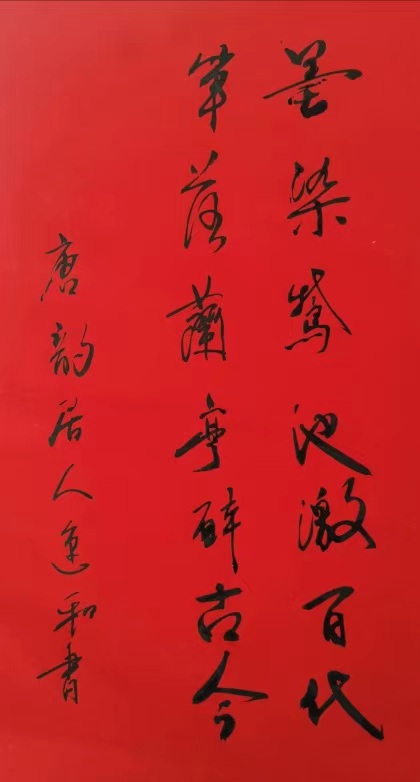 墨染鹅池激百代
笔落兰亭醉古今
唐韵居人运和书